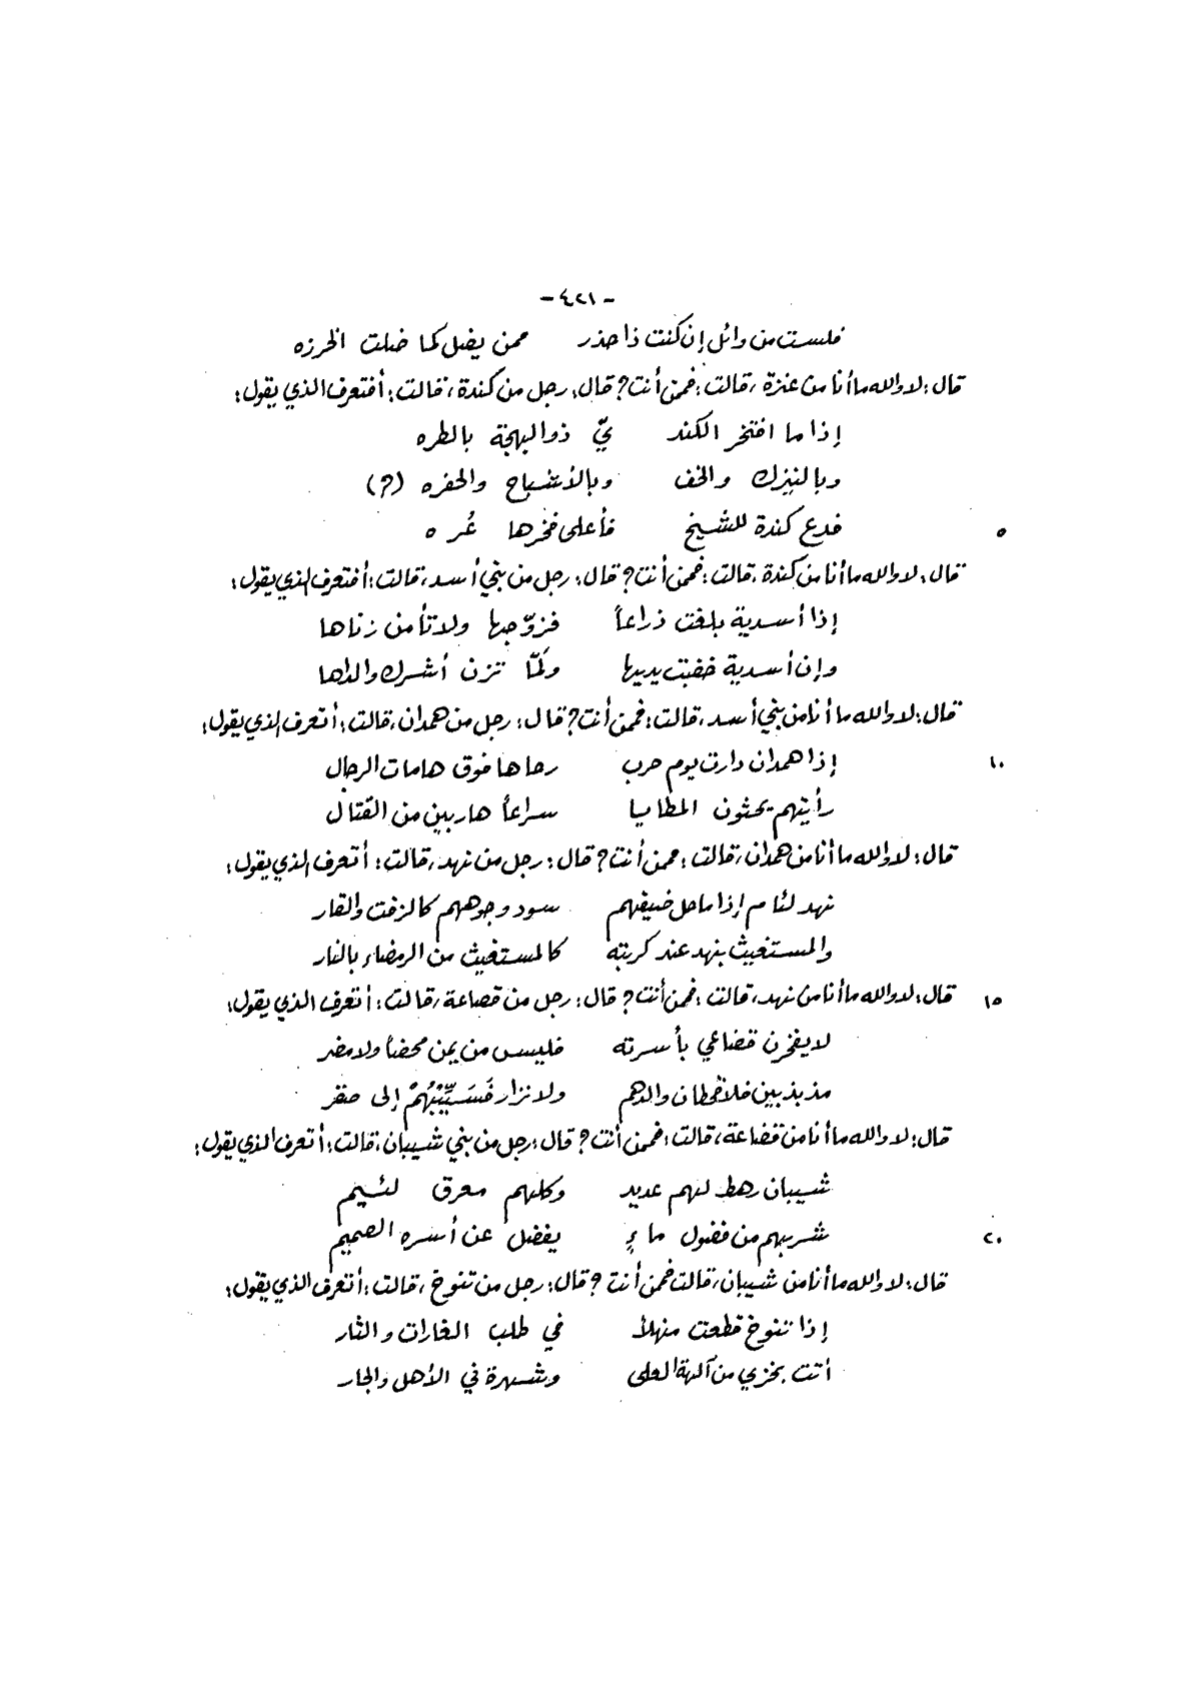 - ٤٢١ -
فلست من وائل إن كنت ذا حذر ممن يضل كما ضلت الخرزه
قال: لا والله ما أنا من عنزة، قالت: فمن أنت? قال: رجل من كندة، قالت: أفتعرف الذي يقول:
إذا ما افتخر الكند يّ ذو البهجة بالطره
وبالنيزك والخف وبالأشباح والحفره (?)
٥ فدع كندة للشيخ فأعلى فخرها عُره
قال: لا والله ما أنا من كندة، قالت: فمن أنت? قال: رجل من بني أسد، قالت: أفتعرف الذي يقول:
إذا أسدية بلغت ذراعاً فزوّجها ولا تأمن زناها
وإن أسدية خضبت يديها ولمّا تزن أشرك والداها
قال: لا والله ما أنا من بني أسد، قالت: فمن أنت? قال: رجل من همدان، قالت: أتعرف الذي يقول:
١٠ إذا همدان دارت يوم حرب رحاها فوق هامات الرجال
رأيتهم يحثون المطايا سراعاً هاربين من القتال
قال: لا والله ما أنا من همدان، قالت: ممن أنت? قال: رجل من نهد، قالت: أتعرف الذي يقول:
نهد لئام إذا ما حل ضيفهم سود وجوههم كالزفت والقار
والمستغيث بنهد عند كربته كالمستغيث من الرمضاء بالنار
١٥ قال: لا والله ما أنا من نهد، قالت: فمن أنت? قال: رجل من قضاعة، قالت: أتعرف الذي يقول:
لا يفخرن قضاعي بأسرته فليس من يمن محضاً ولا مضر
مذبذبين فلا قحطان والدهم ولا نزار فَسَيِّبْهُمُ إلى صقر
قال: لا والله ما أنا من قضاعة، قالت: فمن أنت? قال: رجل من بني شيبان، قالت: أتعرف الذي يقول:
شيبان رهط لهم عديد وكلهم معرق لئيم
٢٠ شربهم من فضول ماءٍ يفضل عن أسره الصميم
قال: لا والله ما أنا من شيبان، قالت فمن أنت ? قال: رجل من تنوخ، قالت: أتعرف الذي يقول:
إذا تنوخ قطعت منهلاً في طلب الغارات والثار
أتت بخزي من آلهة العلى وشهرة في الأهل والجار